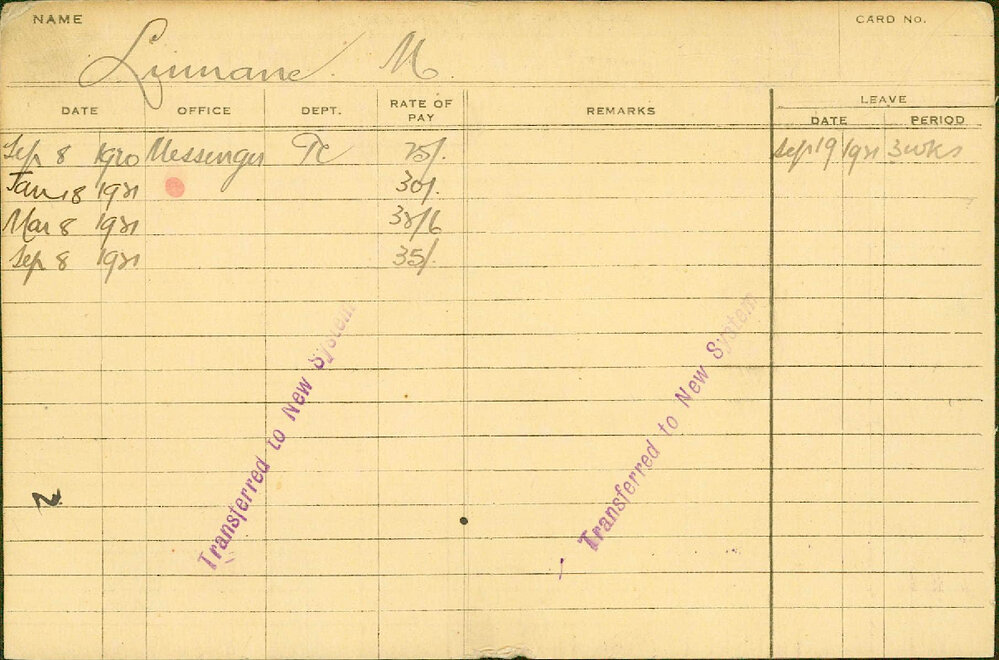 NAME
CARD No.
Linnane. M.
DATE OFFICE DEPT. RATE OF PAY REMARKS LEAVE
DATE PERIOD
Sep 8 1920 Messenger 25/. Sep 19 1921 3 wks
Jan 18 1921 30/.
Mar 8 1921 32/6
Sep 8 1921 35/.
Transferred to New System
Transferred to New System